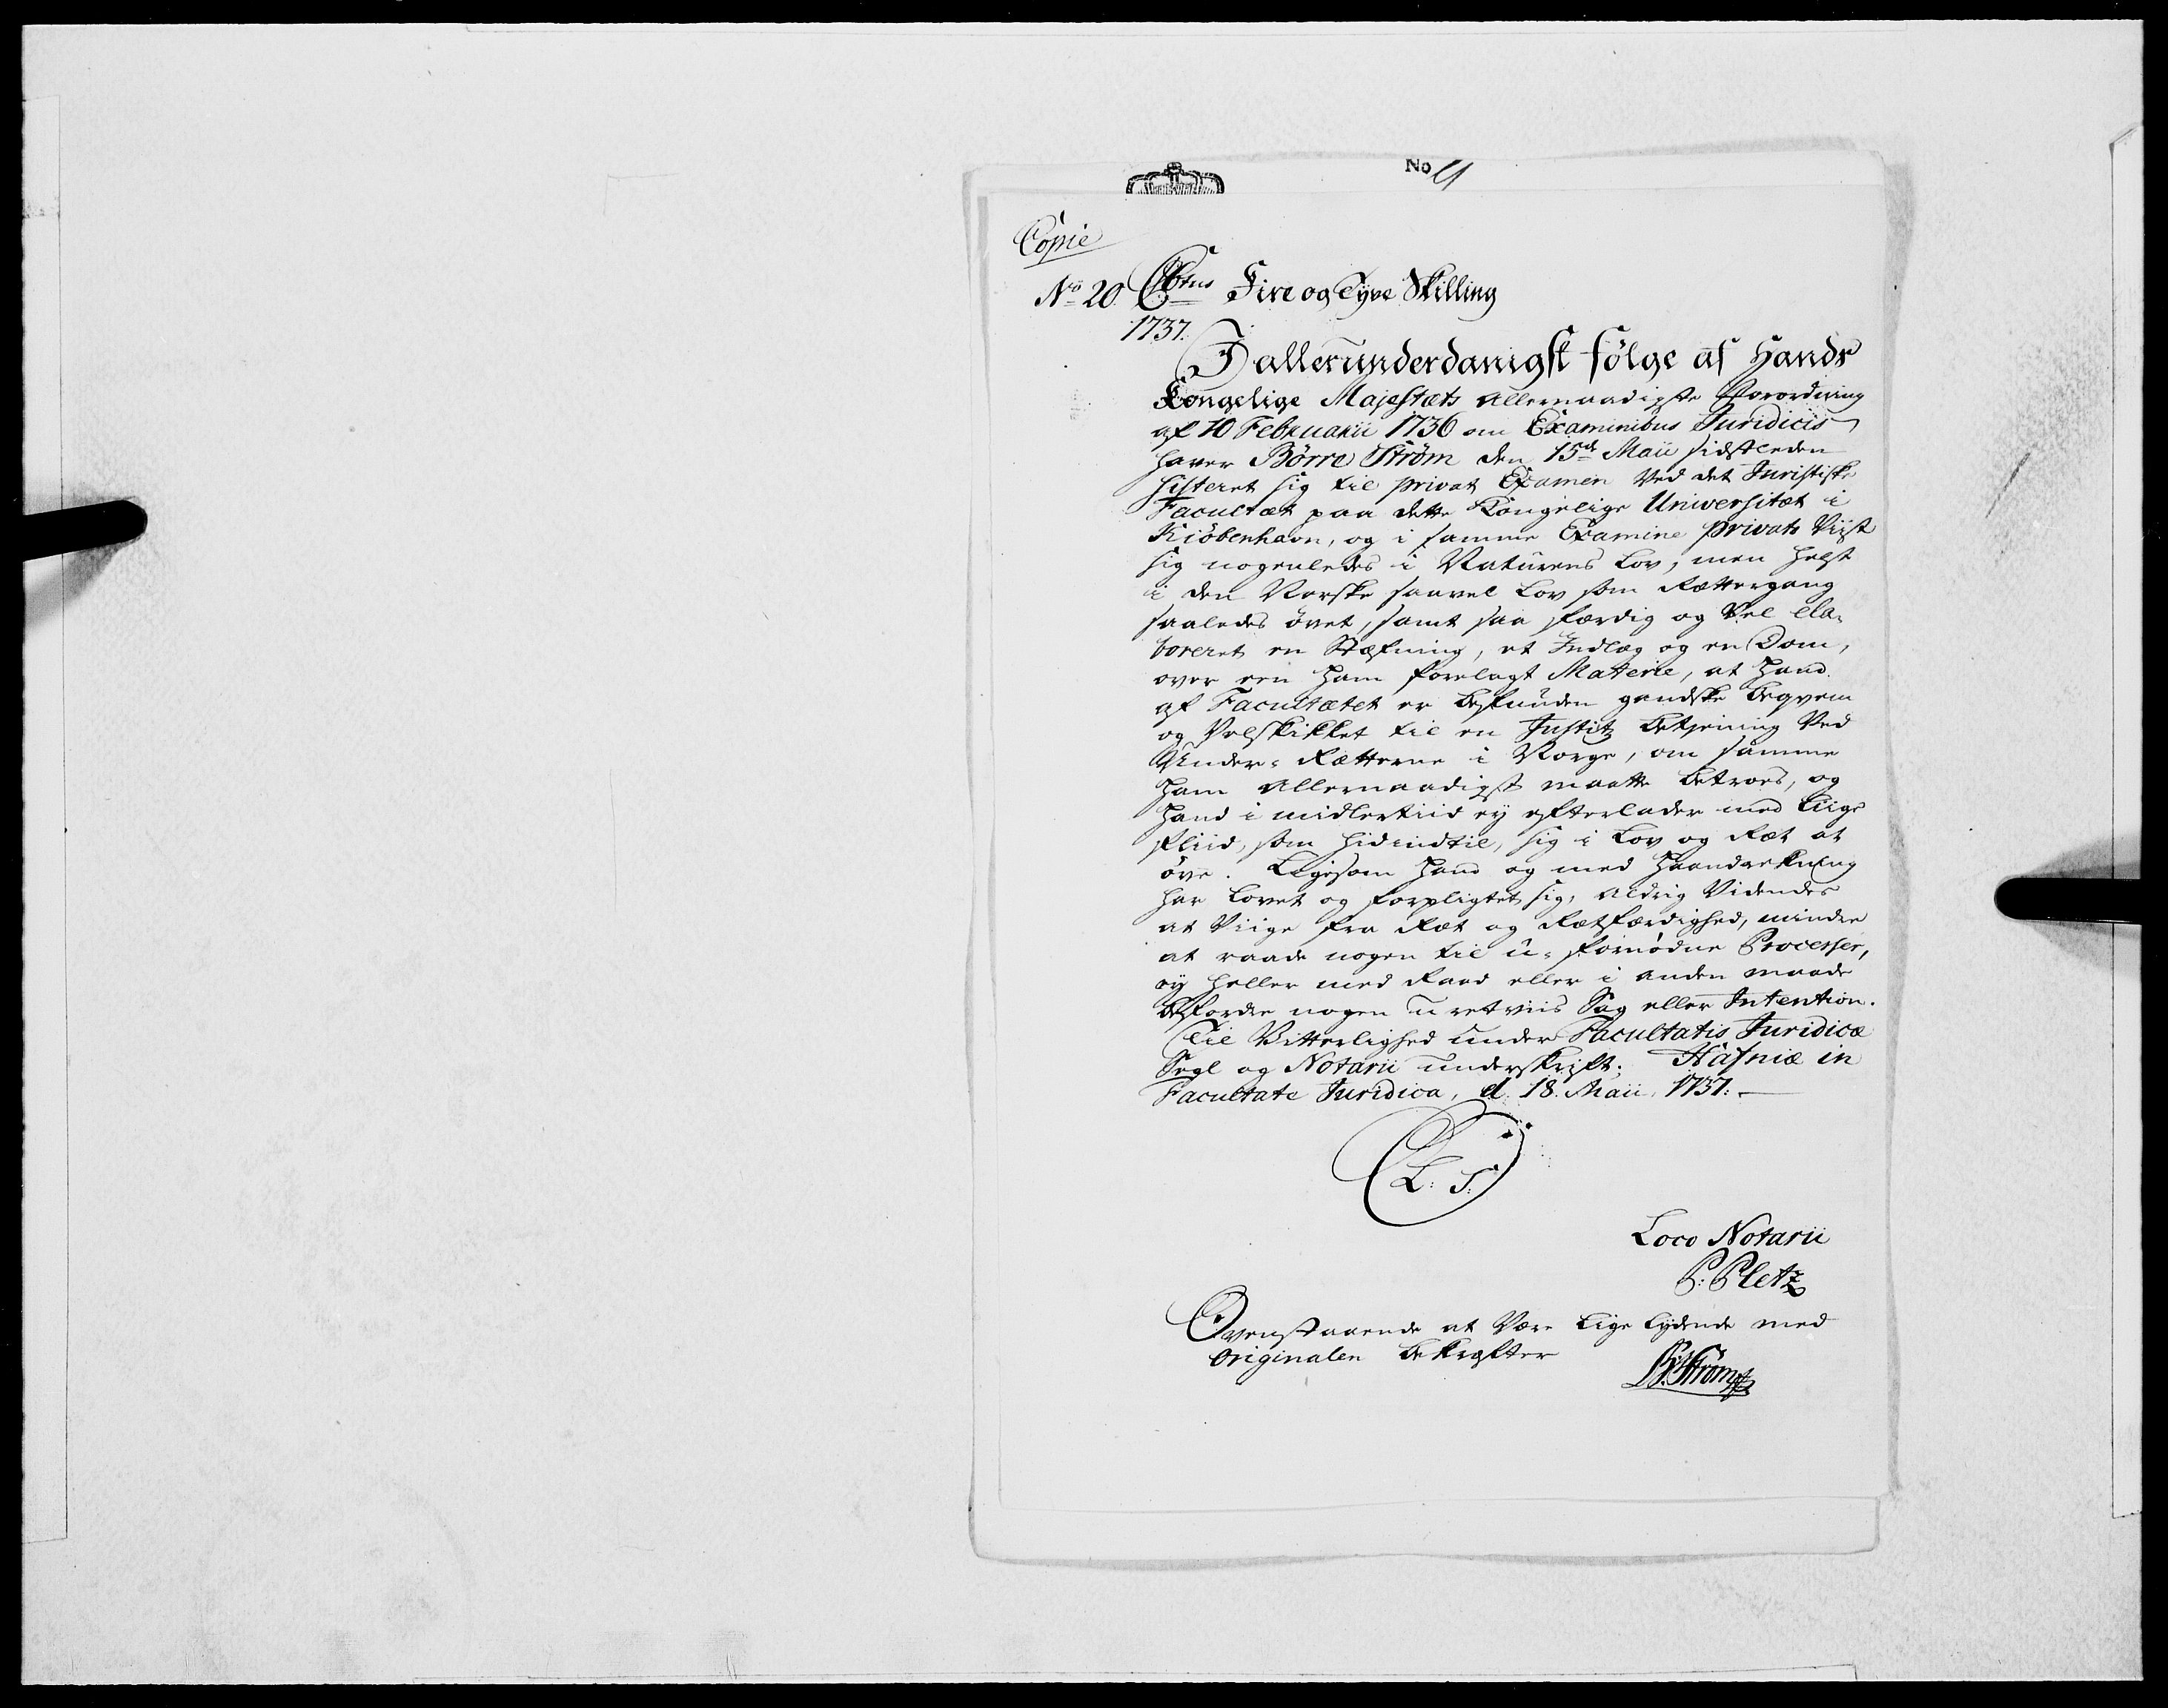 No
Copie
No 20. C6tus Fire og Tyve Skilling
1737.
I allerunderdanigst følge af Hands
Kongelige Majestæts Allernaadigste Forordning
af 10 Februarii 1736 om Examinibus Juridicis
haver Børre Strøm den 15de Maii sidstleden
sisteret sig til privat Examen Ved det Juristiske
Facultæt paa dette Kongelige Universitæt i
Kiöbenhavn, og i samme Examine privato Viist
sig nogenledes i Naturens Lov, men helst
i den Norske saavel Lov som Rættergang
saaledes övet, samt saa færdig og Vel ela-
boreret en Stæfning, et Indlæg og en Dom,
over een ham forelagt Materie, at Hand
af Facultætet er befunden gandske beqvem
og Velskikket til en Justitz betiening Ved
Under-Rætterne i Norge, om samme
ham Allernaadigst maatte betroes, og
Hand i midlertiid ey efterlader med Liige
fliid, som hidindtil, sig i Lov og Ræt at
öve. Ligesom Hand og med Haandrækning
har Lovet og forpligtet sig, Aldrig Videndes
at Viige fra Ræt og Rætfærdighed, mindre
at raade nogen til u-fornödne Processer,
ey heller med Raad eller i anden maade
befordre nogen uretviis Sag eller Intention.
Til Vitterlighed under Facultatis Juridicæ
Segl og Notarii underskrift. Hafniæ in
Facultate Juridica, d. 18. Maii, 1737.
L. S.
Loco Notarii
P: Pletz
Ovenstaaende at Være Lige Lydende med
Originalen Bekræfter
B: Strøm